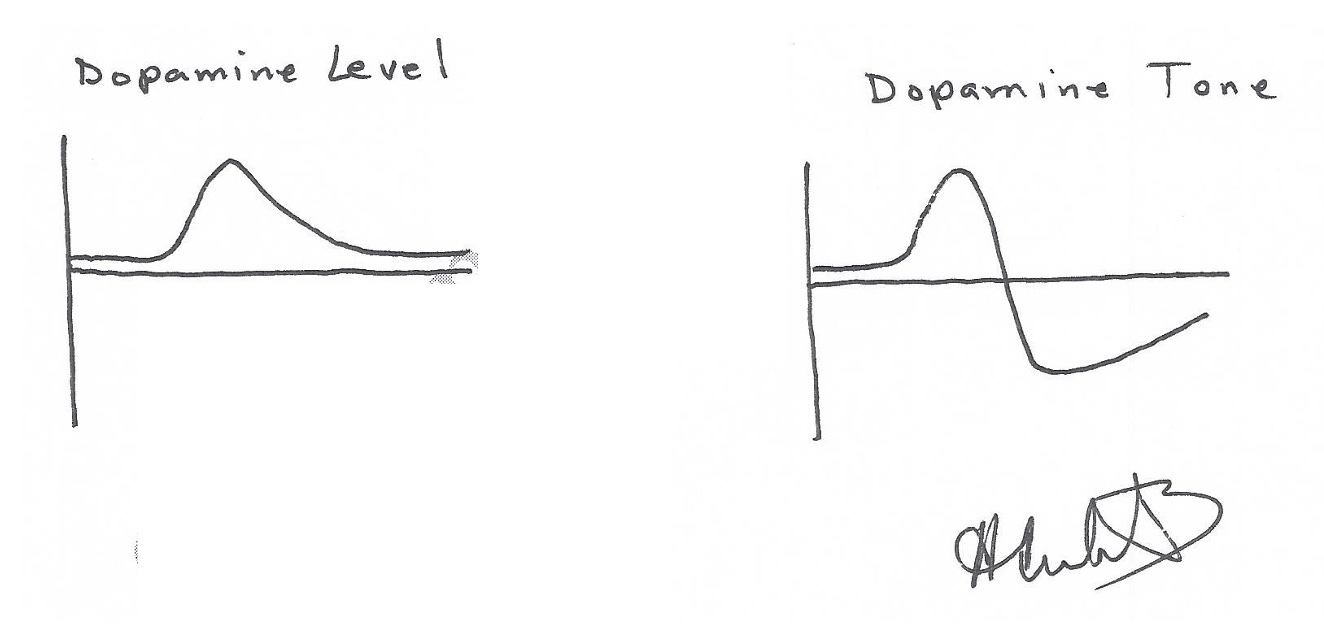 Dopamine Level
Dopamine Tone